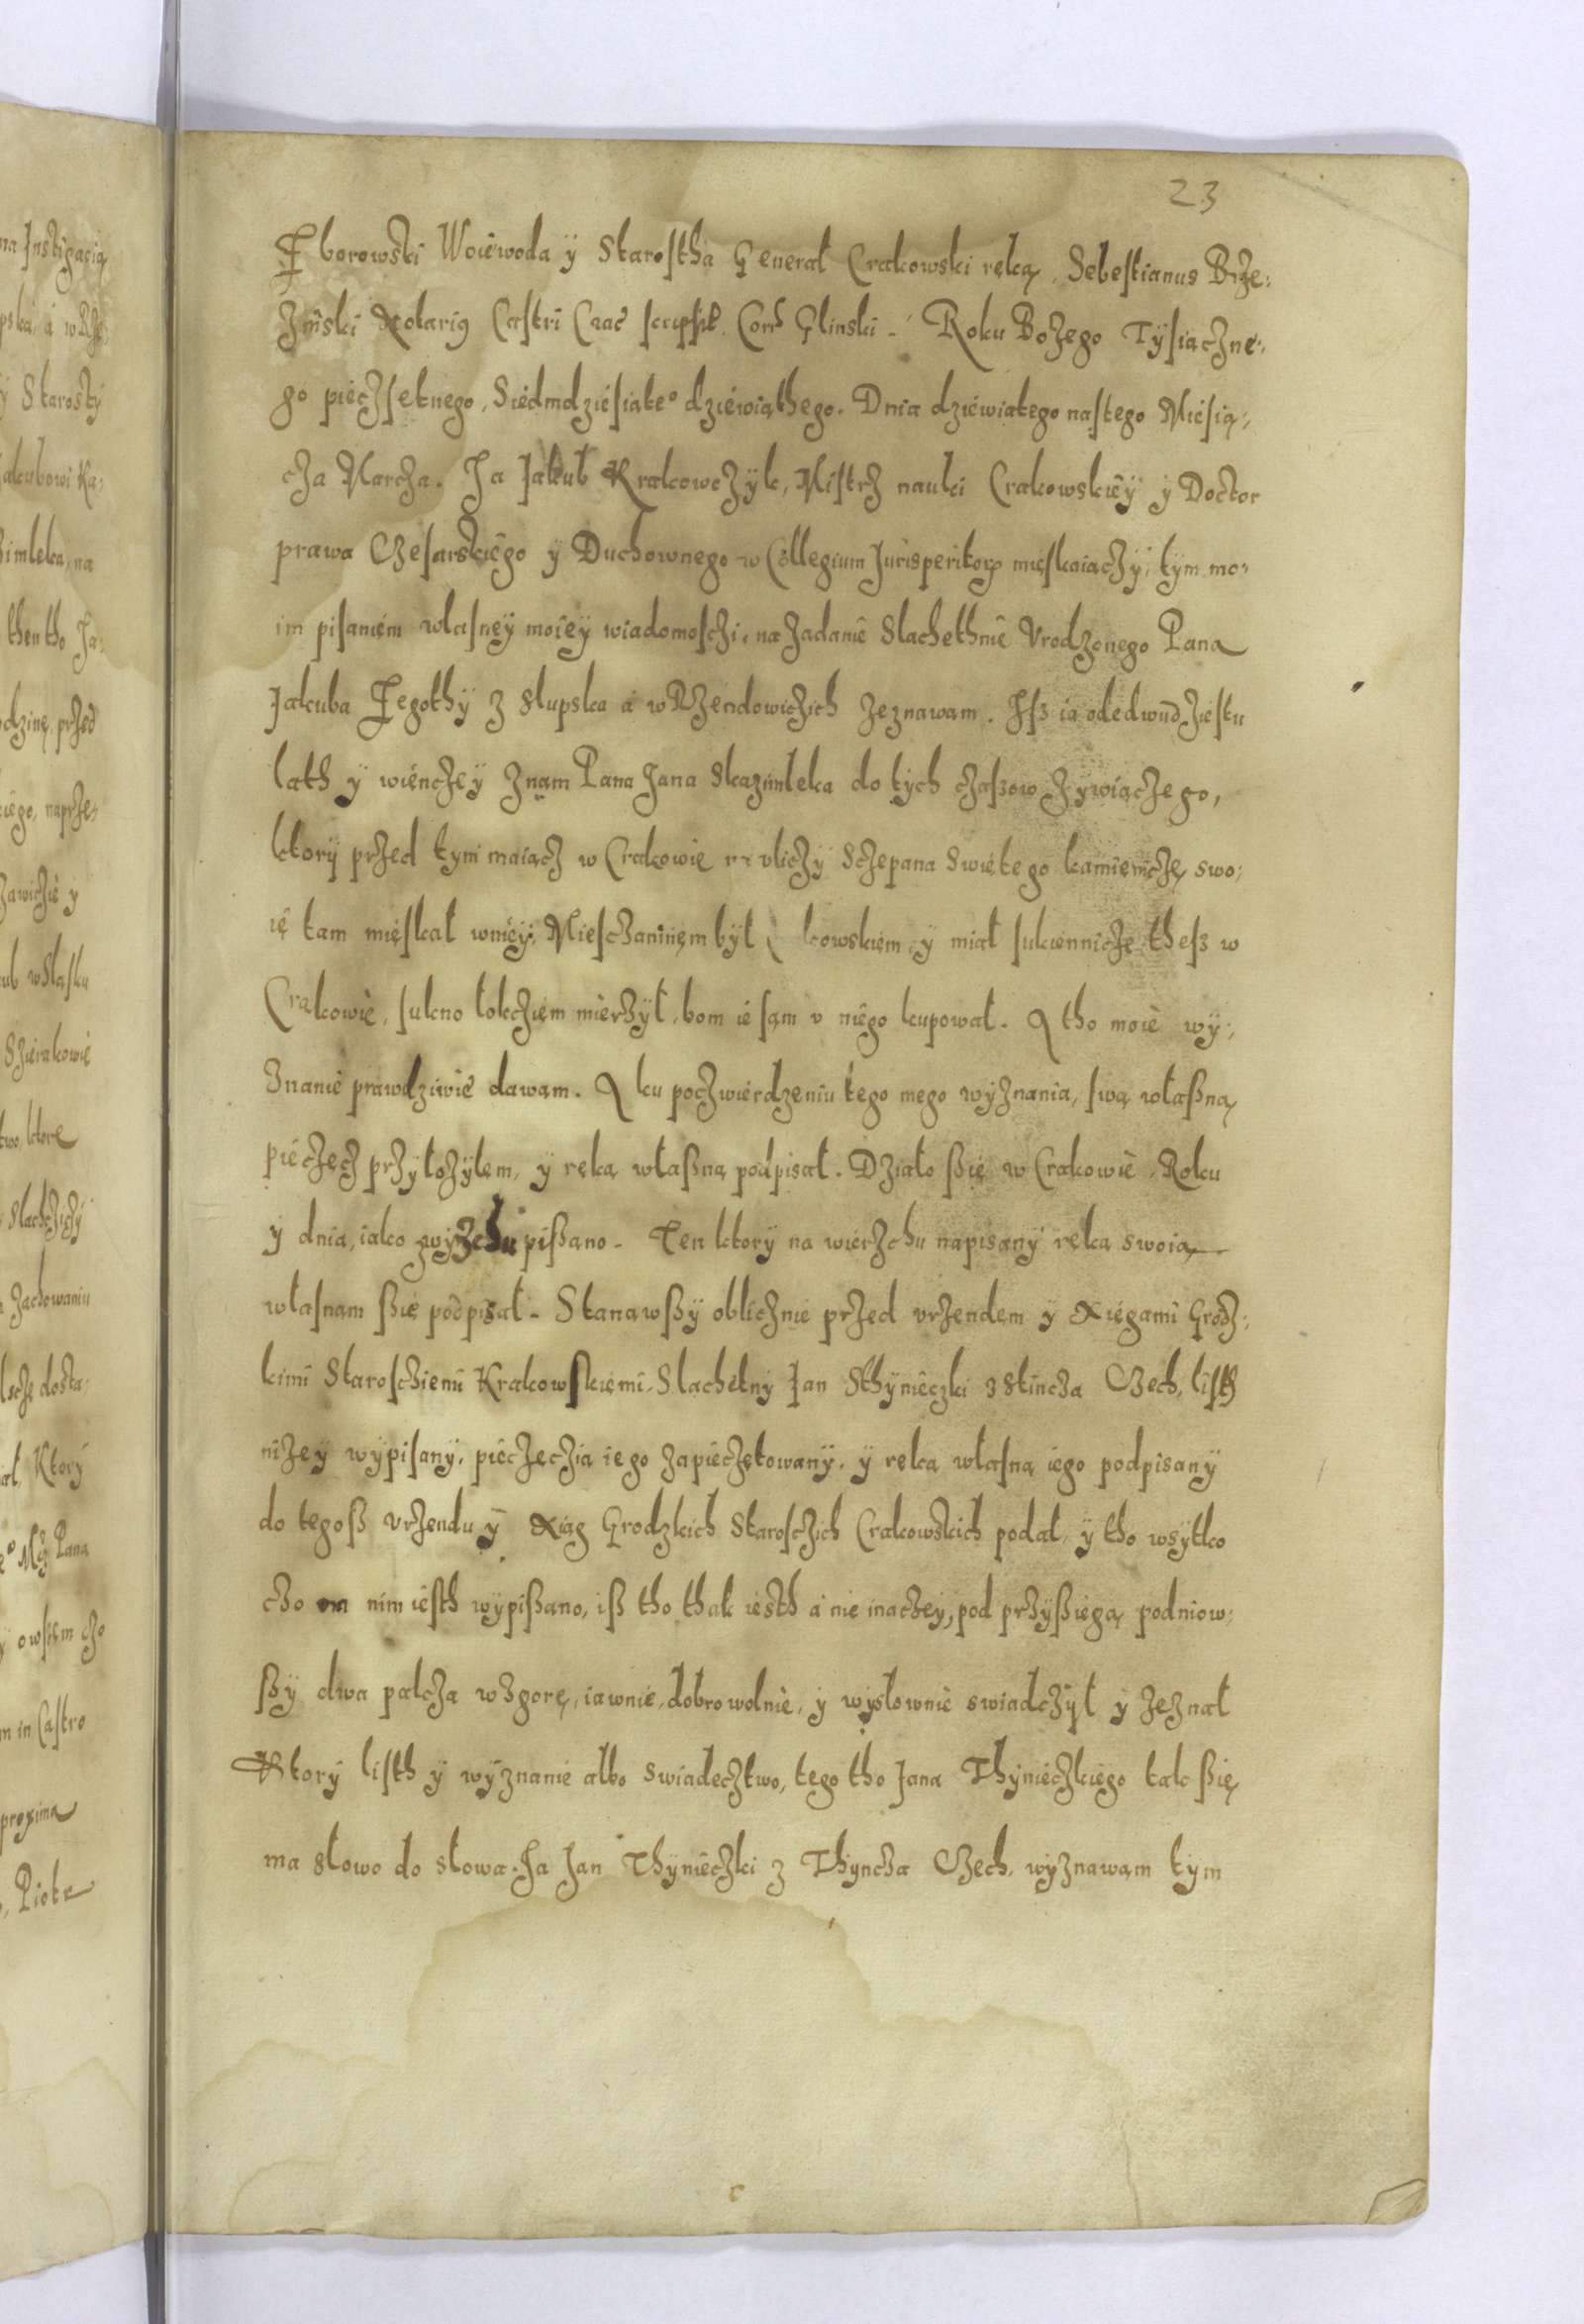 23
Zborowski Woiewoda ÿ Starostha General Crakowski ręką. Sebestianus Brze:
zinski Notariꝰ Castri Crač scripsit. Corꝛ Glinski - Roku Bozego Tysiączne:
go pięczsetnego, Siedmdziesiąteº dziewiąthego. Dnia dziewiatego nastego Miesią:
cza Marcza. Ja Jakub Krakowczyk, Mistrz nauki Crakowskiey ÿ Doctor
prawa Czesarskiego ÿ Duchownego w Collegium Jurisperitoꝝ mięskaiączÿ, tym mo:
im pisaniem własneÿ moieÿ wiadomoschi, na ządanie Slachethnie Vrodzonego Pana
Jakuba Zegothÿ z Slupska a w Rzendowiczich zeznawam. Jsz ia odedwudziestu
lath ÿ wienczeÿ znam Pana Jana Skazimleka do tych czaszow zywiączego,
ktorÿ przed tym maiącz w Crakowie na vliczÿ Sczepana Swiętego kamieniczę swo:
ię tam mięskał wnieÿ, Miesczaninem bÿł kowskiem, ÿ miał sukiennicze thesz w
Crakowie, sukno łokcziem mierzÿł, bom ie sam v niego kupował. A tho moie wÿ:
znanie prawdziwie dawam. A ku poczwierdzeniu tego mego wÿznania, swą właszną
pieczęcz przÿłozÿłem, ÿ ręką własną podpisał. Działo szię w Crakowie, Roku
ÿ dnia, iako zwyzchu piszano - Ten ktorÿ na wierzchu napisanÿ ręką swoią
własnam szię podpisał - Stanąwszÿ oblicznie przed vrzendem ÿ Xięgami Grodz:
kimi Starosczienii Krakowskiemi, Slachetny Jan Sthynieczki z Stincza Czech, listh
nizeÿ wÿpisanÿ, pieczęczią iego zapieczętowanÿ, ÿ ręką własną iego podpisanÿ
do tegosz vrzendu ÿ Xiąg Grodzkich Starosczich Crakowskich podał, ÿ tho wsÿtko
czo na nim iesth wÿpiszano, isz tho thak iesth a nie inaczeÿ, pod przÿszięgą podniow:
szÿ dwa palcza wzgorę, iawnie, dobrowolnie, ÿ wÿsłownie swiadczÿł ÿ zeznał
Ktorÿ listh ÿ wÿznanie albo swiadecztwo, tego tho Jana Thÿnieczkiego tak szię
ma słowo do słowa. Ja Jan Thÿnieczki z Thÿncza Czech, wÿznawam tÿm